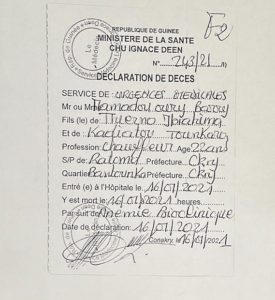 F-2
REPUBLIQUE DE GUINEE
MINISTERE DE LA SANTE
CHU IGNACE DEEN
N° 243/21
DECLARATION DE DECES
SERVICE DE: URGENCES MEDICALES
Mr ou Mme Mamadou oury Barry
Fils (le) de Thierno Ibrahima
Et de Kadiatou Tounkara
Profession chauffeur Age 22ans
S/P de Ratoma Préfecture Ckry
Quartier Bantounka Préfecture Ckry
Entré (e) à l'Hôpitale le 16/01/2021
Y est mort le 16/01/2021 heures
Par suit de Anémie Bioclinique
Date de déclaration 16/01/2021
Conakry, le 16/01/2021